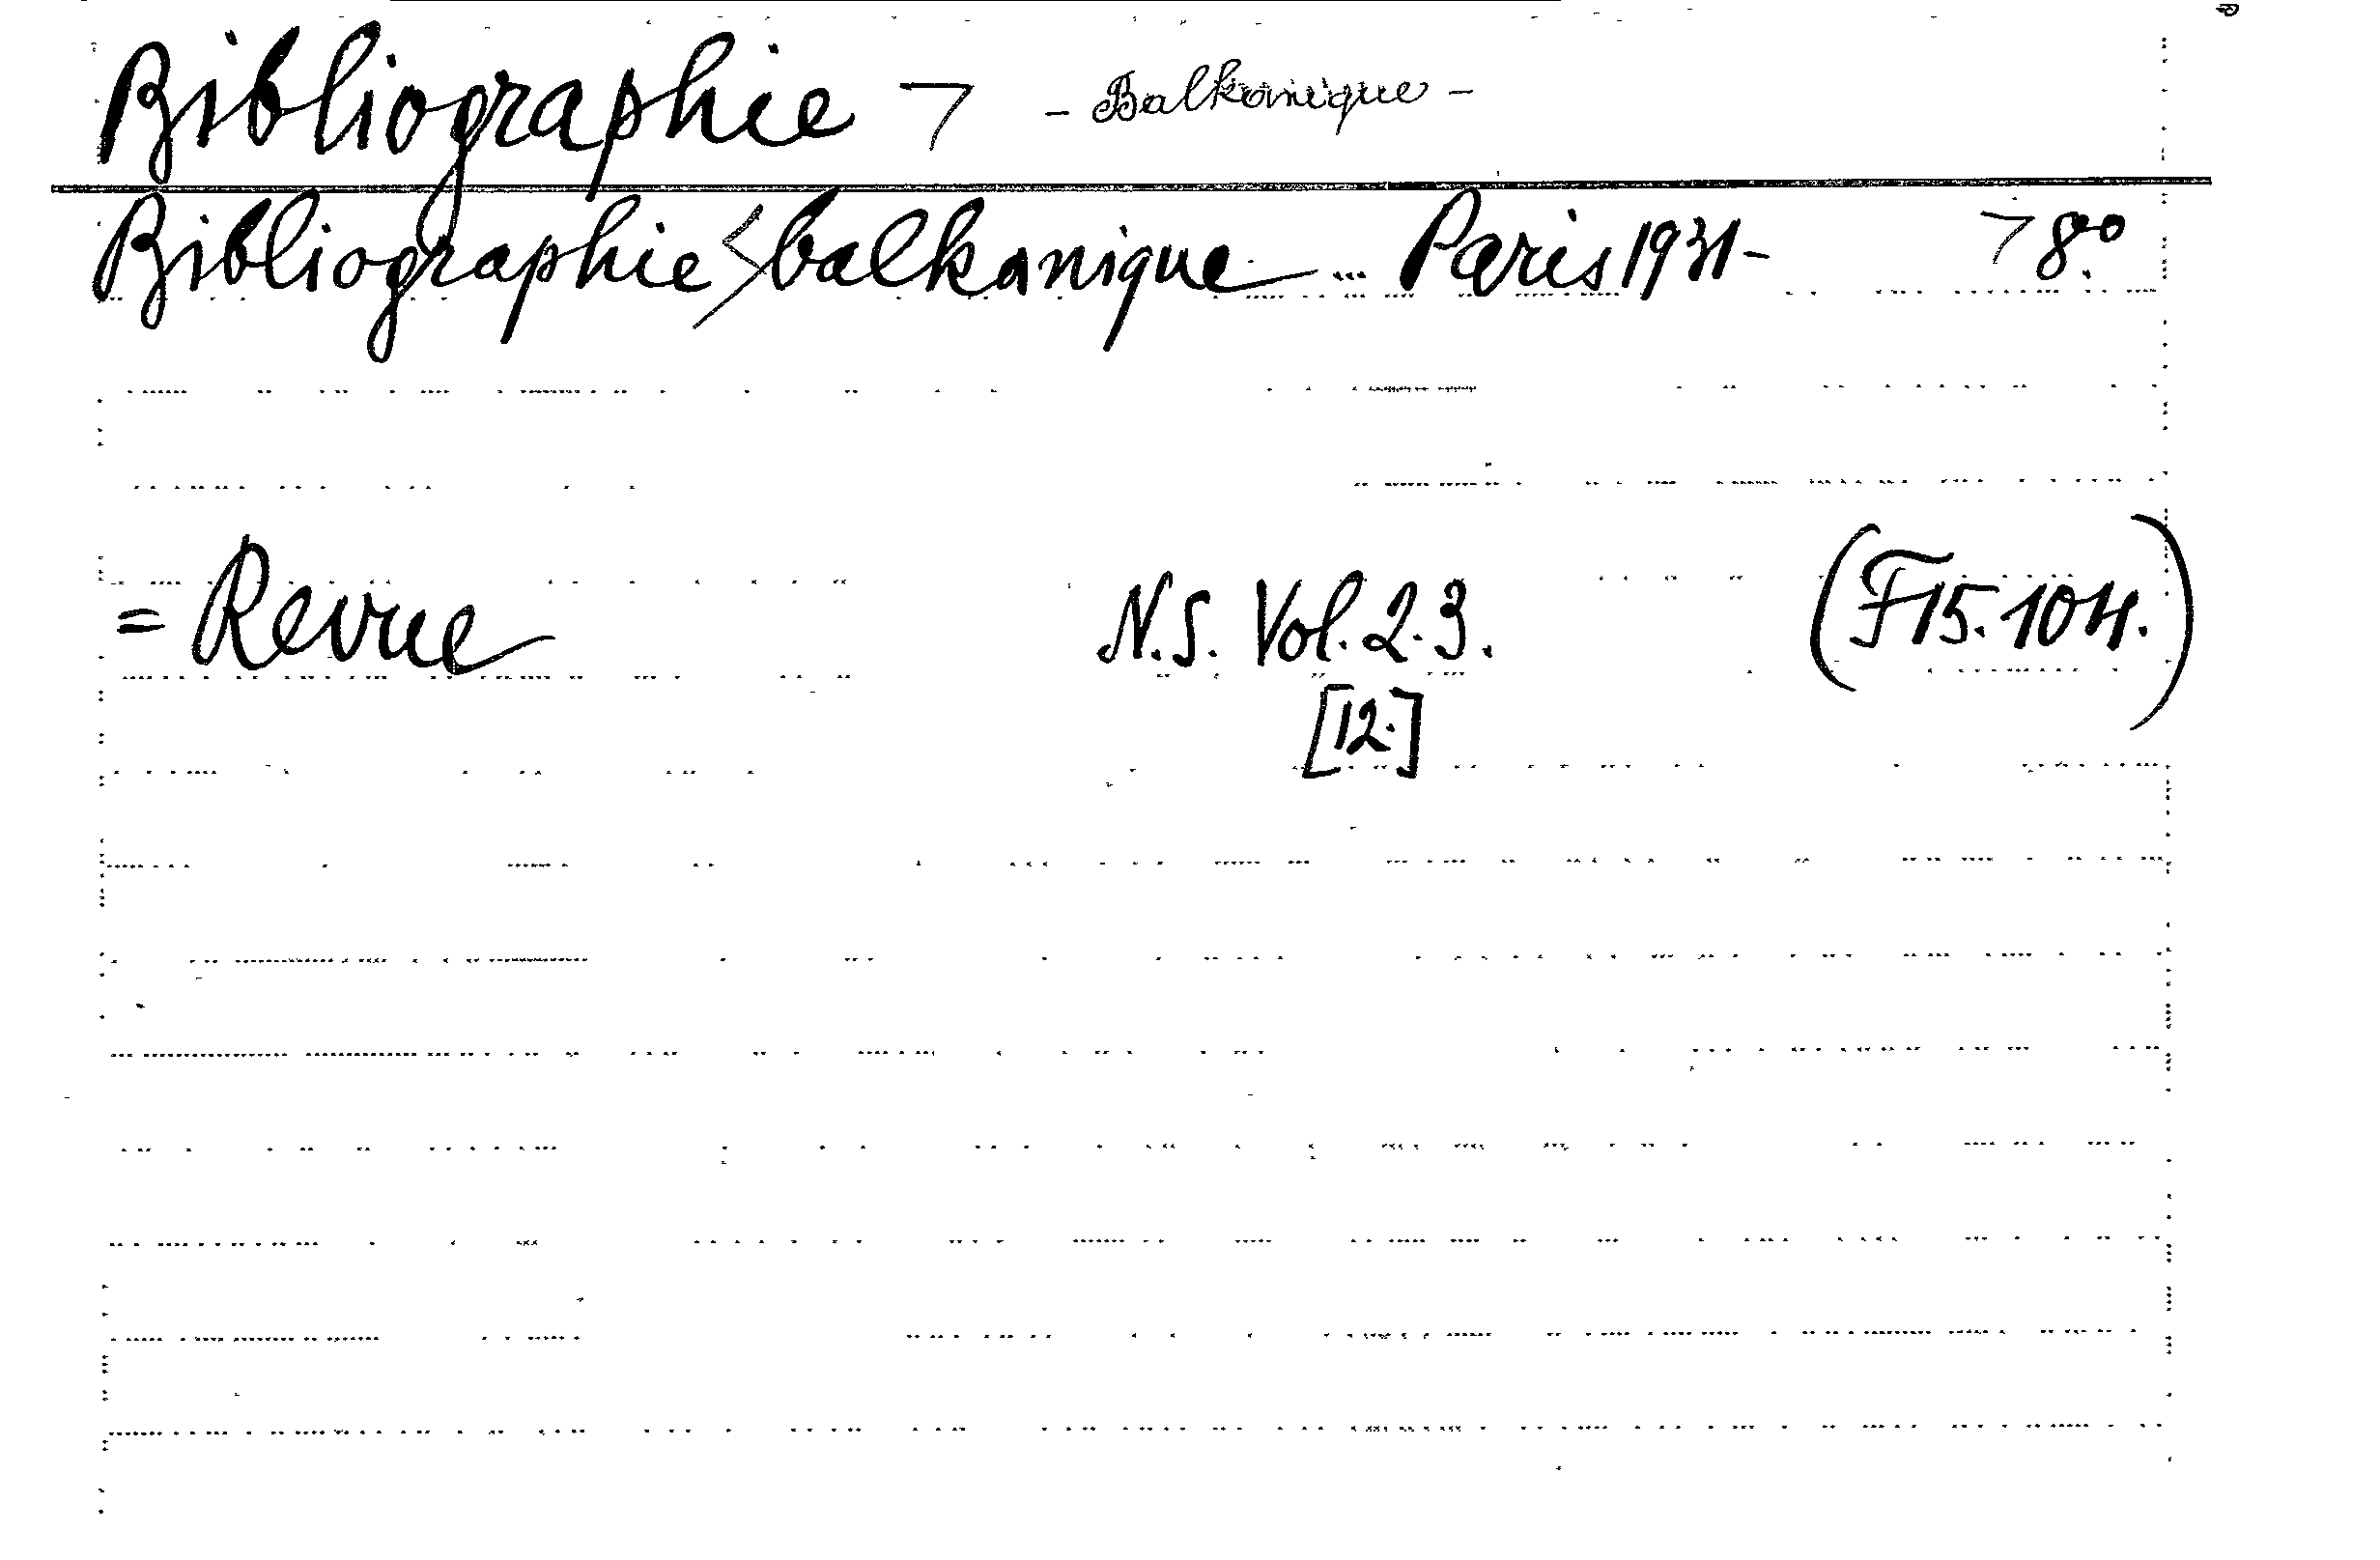 Bibliographie ㄱ - Balkanique -
Bibliographie < balkanique ... Paris 1931 - > 8.º
= Revue N.S. Vol. 2.3. (F15.104.)
[12.]